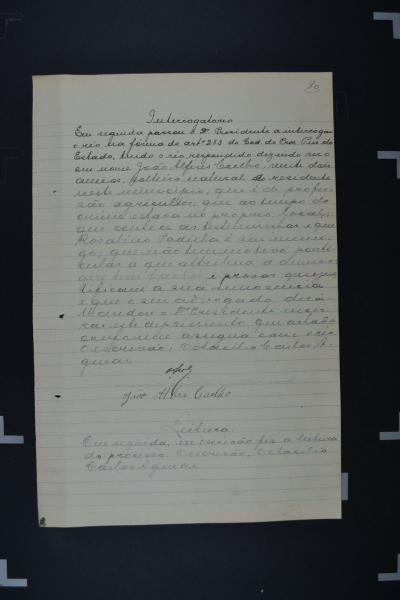 80
Interrogatorio
Em seguida passou o Dr. Presidente a interrogar
o réo na fórma do artº 273 do Cod. do Proc. Pen. do
Estado, tendo o réo respondido dizendo ser o
seu nome João Alves Coelho, vinte e dois
annos, solteiro, natural e residente
neste municipio, que é de profis-
são agricultor; que ao tempo do
crime estava no proprio local;
que conhece as testemunhas e que
Rosalino Padilha é seu inimi-
go; que não tem motivo parti-
cular a que attribua a denuncia
que tem factos e provas que jus-
tificam a sua innocencia
e que o seu advogado dirá
Mandou o Dr. Presidente encer-
rar este depoimento que
assigna com o réo
O escrivão, Octacilio Carlos A-
guiar
João Alves Coelho
Leitura
Em seguida, eu escrivão fiz a leitura
do processo. O escrivão, Octacilio
Carlos Aguiar